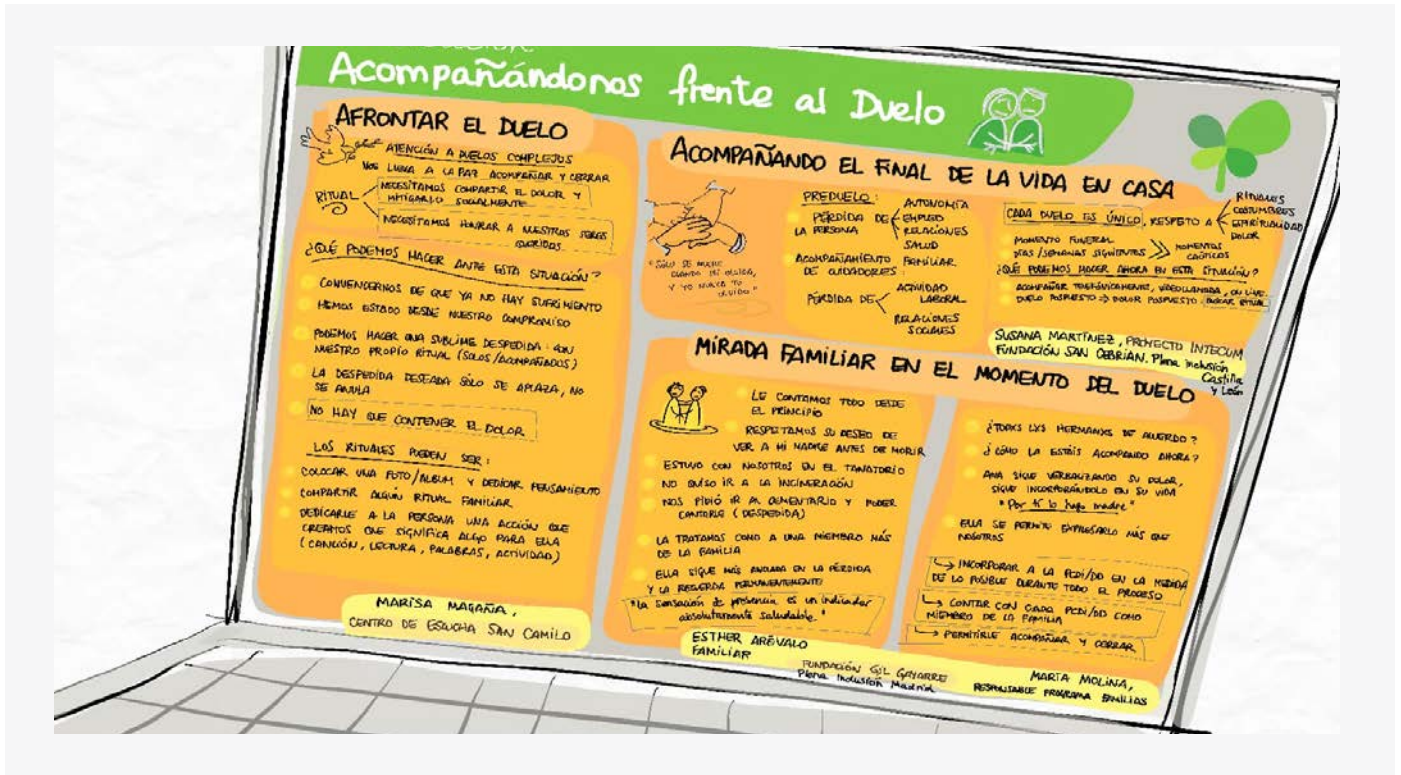 Acompañándonos frente al Duelo
AFRONTAR EL DUELO
ATENCIÓN A DUELOS COMPLEJOS
NOS LLEVA A LA PAZ ACOMPAÑAR Y CERRAR
RITUAL
NECESITAMOS COMPARTIR EL DOLOR Y
MITIGARLO SOCIALMENTE
NECESITAMOS HONRAR A NUESTROS SERES
QUERIDOS
¿QUÉ PODEMOS HACER ANTE ESTA SITUACIÓN?
CONVENCERNOS DE QUE YA NO HAY SUFRIMIENTO
HEMOS ESTADO DESDE NUESTRO COMPROMISO
PODEMOS HACER UNA SUBLIME DESPEDIDA: CON
NUESTRO PROPIO RITUAL (SOLOS/ACOMPAÑADOS)
LA DESPEDIDA DESEADA SÓLO SE APLAZA, NO
SE ANULA
NO HAY QUE CONTENER EL DOLOR
LOS RITUALES PUEDEN SER:
COLOCAR UNA FOTO/ALBUM Y DEDICAR PENSAMIENTO
COMPARTIR ALGÚN RITUAL FAMILIAR
DEDICARLE A LA PERSONA UNA ACCIÓN QUE
CREAMOS QUE SIGNIFICA ALGO PARA ELLA
(CANCIÓN, LECTURA, PALABRAS, ACTIVIDAD)
MARISA MAGAÑA,
CENTRO DE ESCUCHA SAN CAMILO
ACOMPAÑANDO EL FINAL DE LA VIDA EN CASA
"SÓLO SE MUERE
CUANDO SE OLVIDA,
Y YO NUNCA TE
OLVIDO."
PREDUELO:
PÉRDIDA DE
LA PERSONA
AUTONOMÍA
EMPLEO
RELACIONES
SALUD
ACOMPAÑAMIENTO FAMILIAR
DE CUIDADORES:
PÉRDIDA DE
ACTIVIDAD
LABORAL
RELACIONES
SOCIALES
CADA DUELO ES ÚNICO, RESPETO A
RITUALES
COSTUMBRES
ESPIRITUALIDAD
DOLOR
MOMENTO FUNERAL
DÍAS/SEMANAS SIGUIENTES
MOMENTOS
CAÓTICOS
¿QUÉ PODEMOS HACER AHORA EN ESTA SITUACIÓN?
ACOMPAÑAR TELEFÓNICAMENTE, VIDEOLLAMADA, ON LIVE
DUELO POSPUESTO ⇒ DOLOR POSPUESTO: BUSCAR RITUAL
SUSANA MARTÍNEZ, PROYECTO INTECUM
FUNDACIÓN SAN CEBRIÁN. Plena inclusión
Castilla
y León
MIRADA FAMILIAR EN EL MOMENTO DEL DUELO
LE CONTAMOS TODO DESDE
EL PRINCIPIO
RESPETAMOS SU DESEO DE
VER A MI MADRE ANTES DE MORIR
ESTUVO CON NOSOTROS EN EL TANATORIO
NO QUISO IR A LA INCINERACIÓN
NOS PIDIÓ IR AL CEMENTARIO Y PODER
CANTARLE (DESPEDIDA)
LA TRATAMOS COMO A UNA MIEMBRO MÁS
DE LA FAMILIA
ELLA SIGUE MÁS ANCLADA EN LA PÉRDIDA
Y LA RECUERDA PERMANENTEMENTE
"La sensación de presencia es un indicador
absolutamente saludable."
ESTHER ARÉVALO
FAMILIAR
¿TODXS LXS HERMANXS DE ACUERDO?
¿CÓMO LA ESTÁIS ACOMPANDO AHORA?
ANA SIGUE VERBALIZANDO SU DOLOR,
SIGUE INCORPORÁNDOLO EN SU VIDA
"Por tí lo hago madre"
ELLA SE PERMITE EXPRESARLO MÁS QUE
NOSOTROS
INCORPORAR A LA PCDI/DD EN LA MEDIDA
DE LO POSIBLE DURANTE TODO EL PROCESO
CONTAR CON CADA PCDI/DD COMO
MIEMBRO DE LA FAMILIA
PERMITIRLE ACOMPAÑAR Y CERRAR
FUNDACIÓN GIL GAYARRE
Plena Inclusión Madrid
MARTA MOLINA,
RESPONSABLE PROGRAMA FAMILIAS